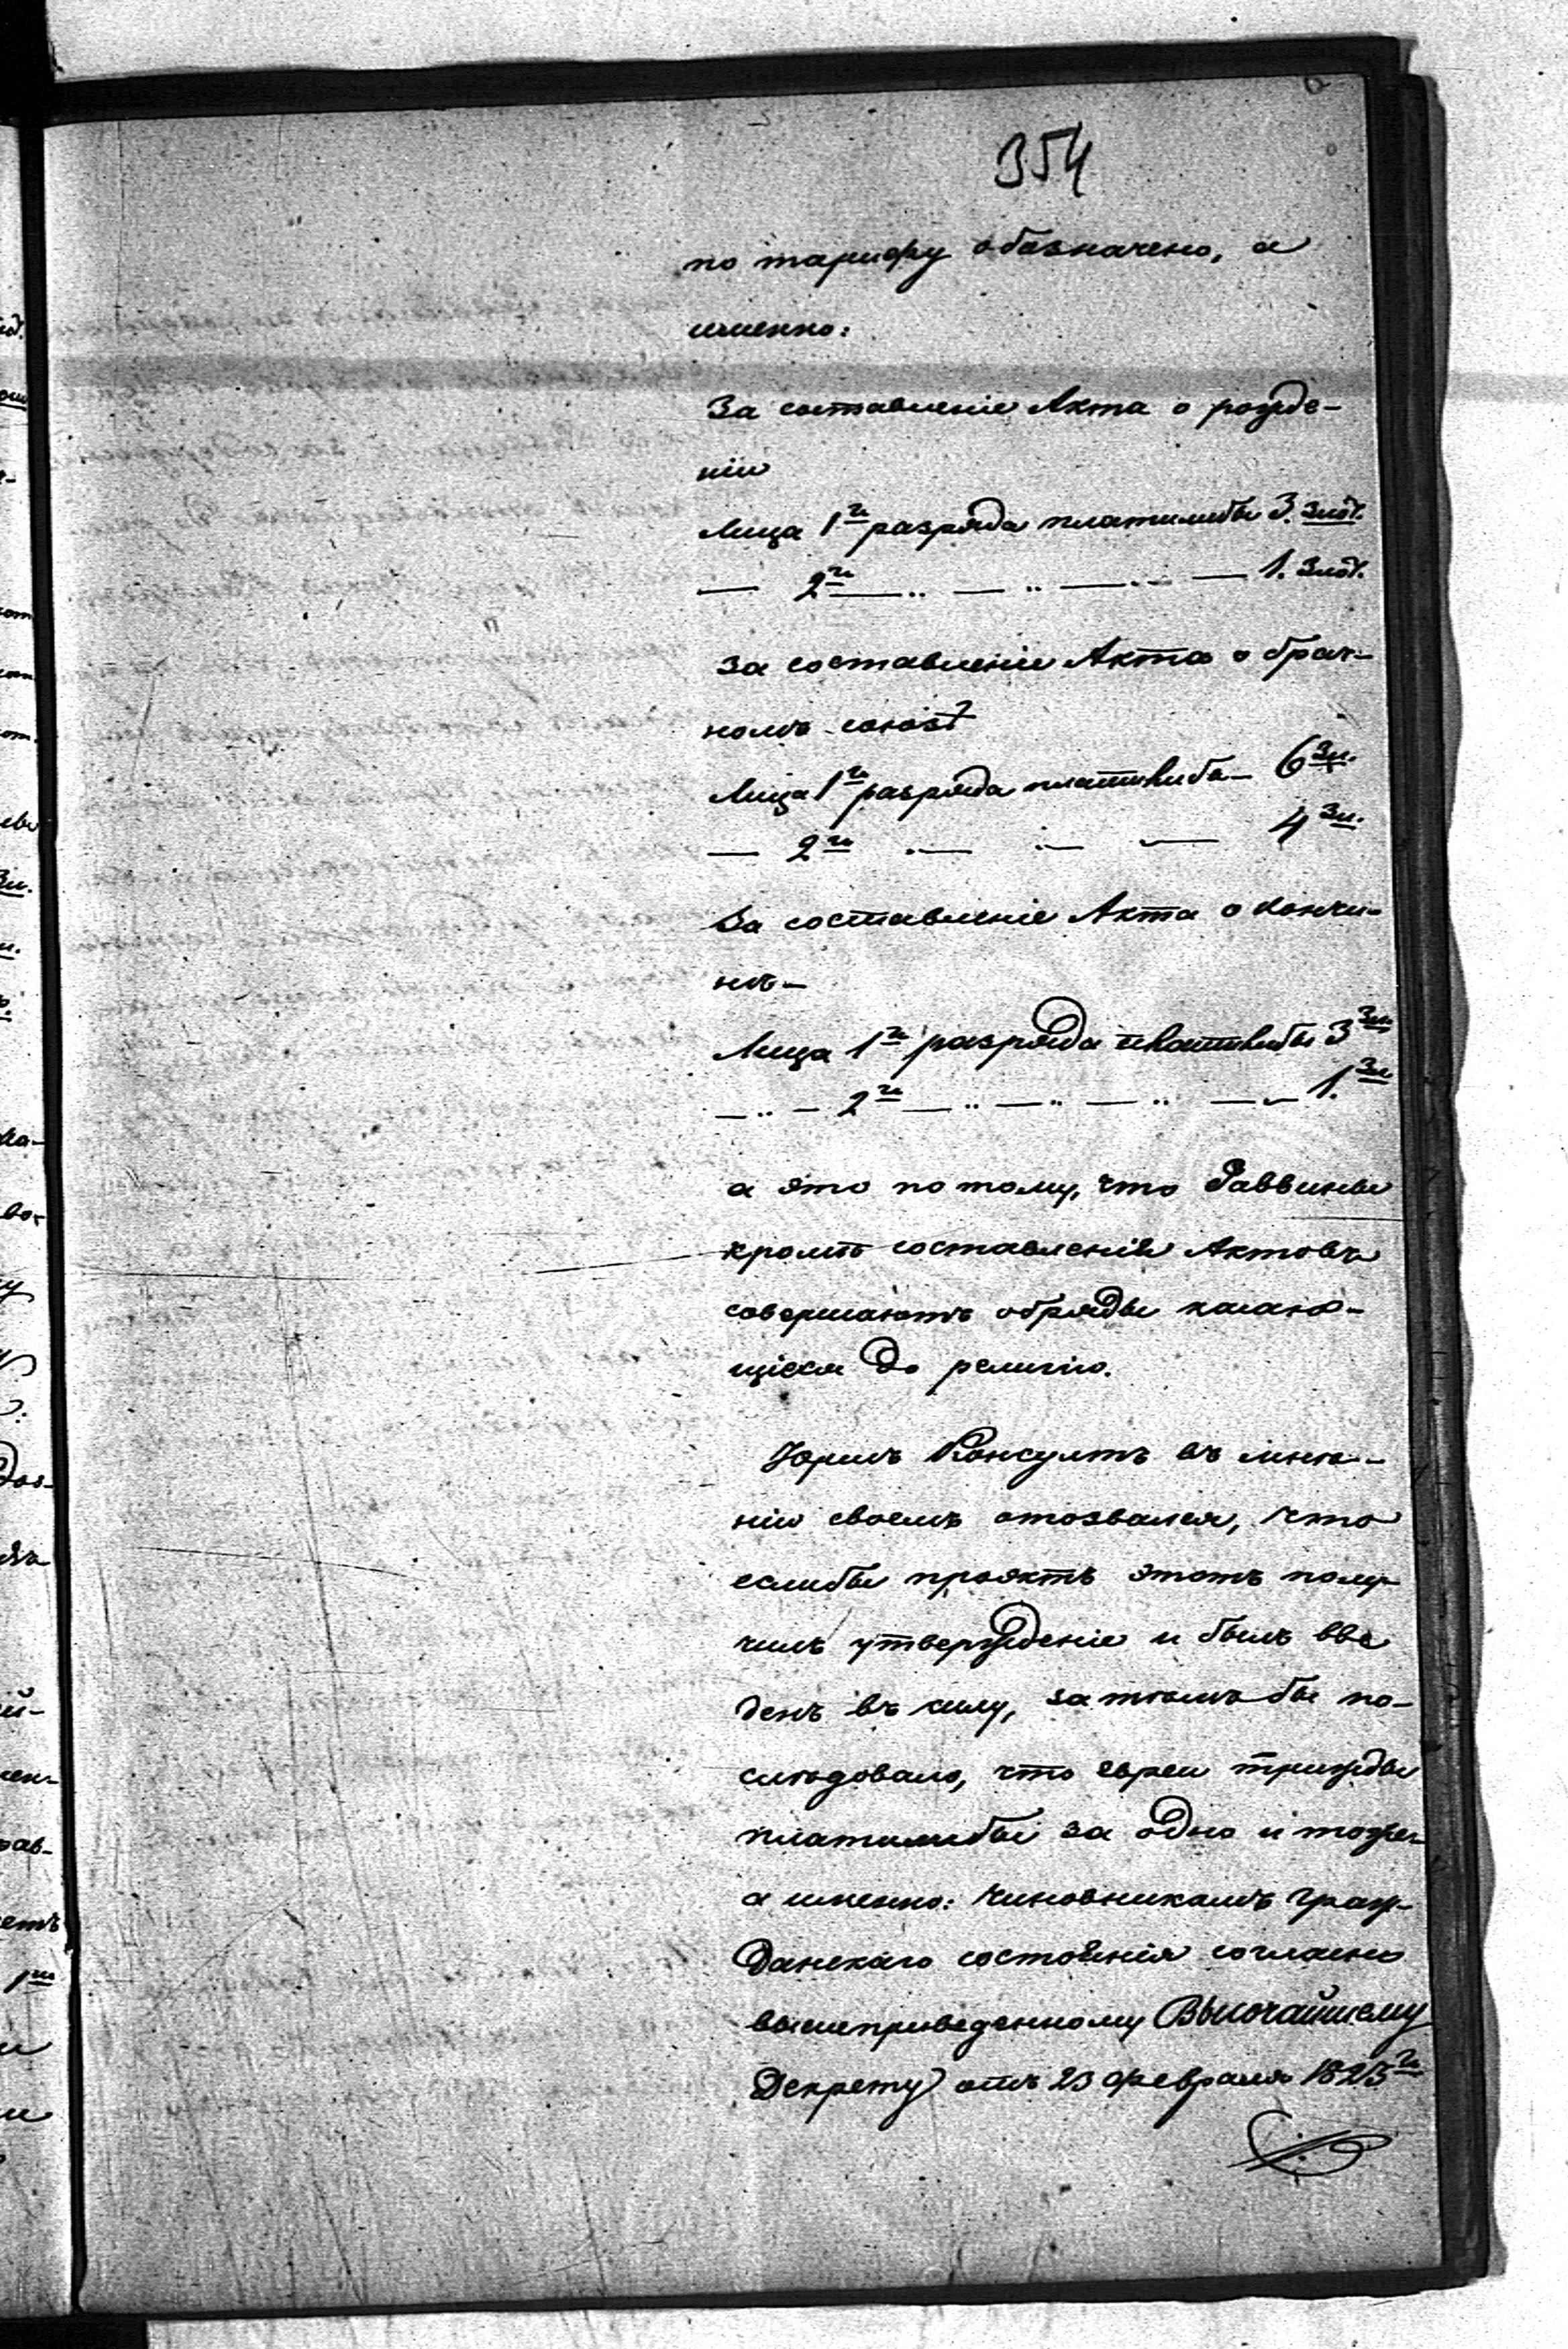 354
по тарифу обозначено, а
именно:
За составленіе Акта о рожде-
ніи
Лица 1го разряда платилибы 3. злот.
— 2го —„ — „ — „ — 1. злот.
За составленіе Акта о брач-
номъ союзѣ
Лица 1го разряда платилибы — 6 зл.
— 2го „— „— — 4 зл.
За составленіе Акта о кончи-
нѣ —
Лица 1го разряда платилибы 3 зл.
— „ — 2го — „ — „ — „ — 1. зл.
а это по тому, что Раввины
кромѣ составленія Актовъ
совершаютъ обряды касаю-
щіеся до религіи.
Юрисъ Консультъ въ мнѣ-
ніи своемъ отозвался, что
еслибы проэктъ этотъ полу-
чилъ утвержденіе и былъ вве
денъ въ силу, за тѣмъ бы по-
слѣдовало, что евреи трижды
платилибы за одно и тоже
а именно: чиновникамъ граж-
данскаго состоянія согласно
вышеприведенному Высочайшему
Декрету отъ 23 февраля 1825го